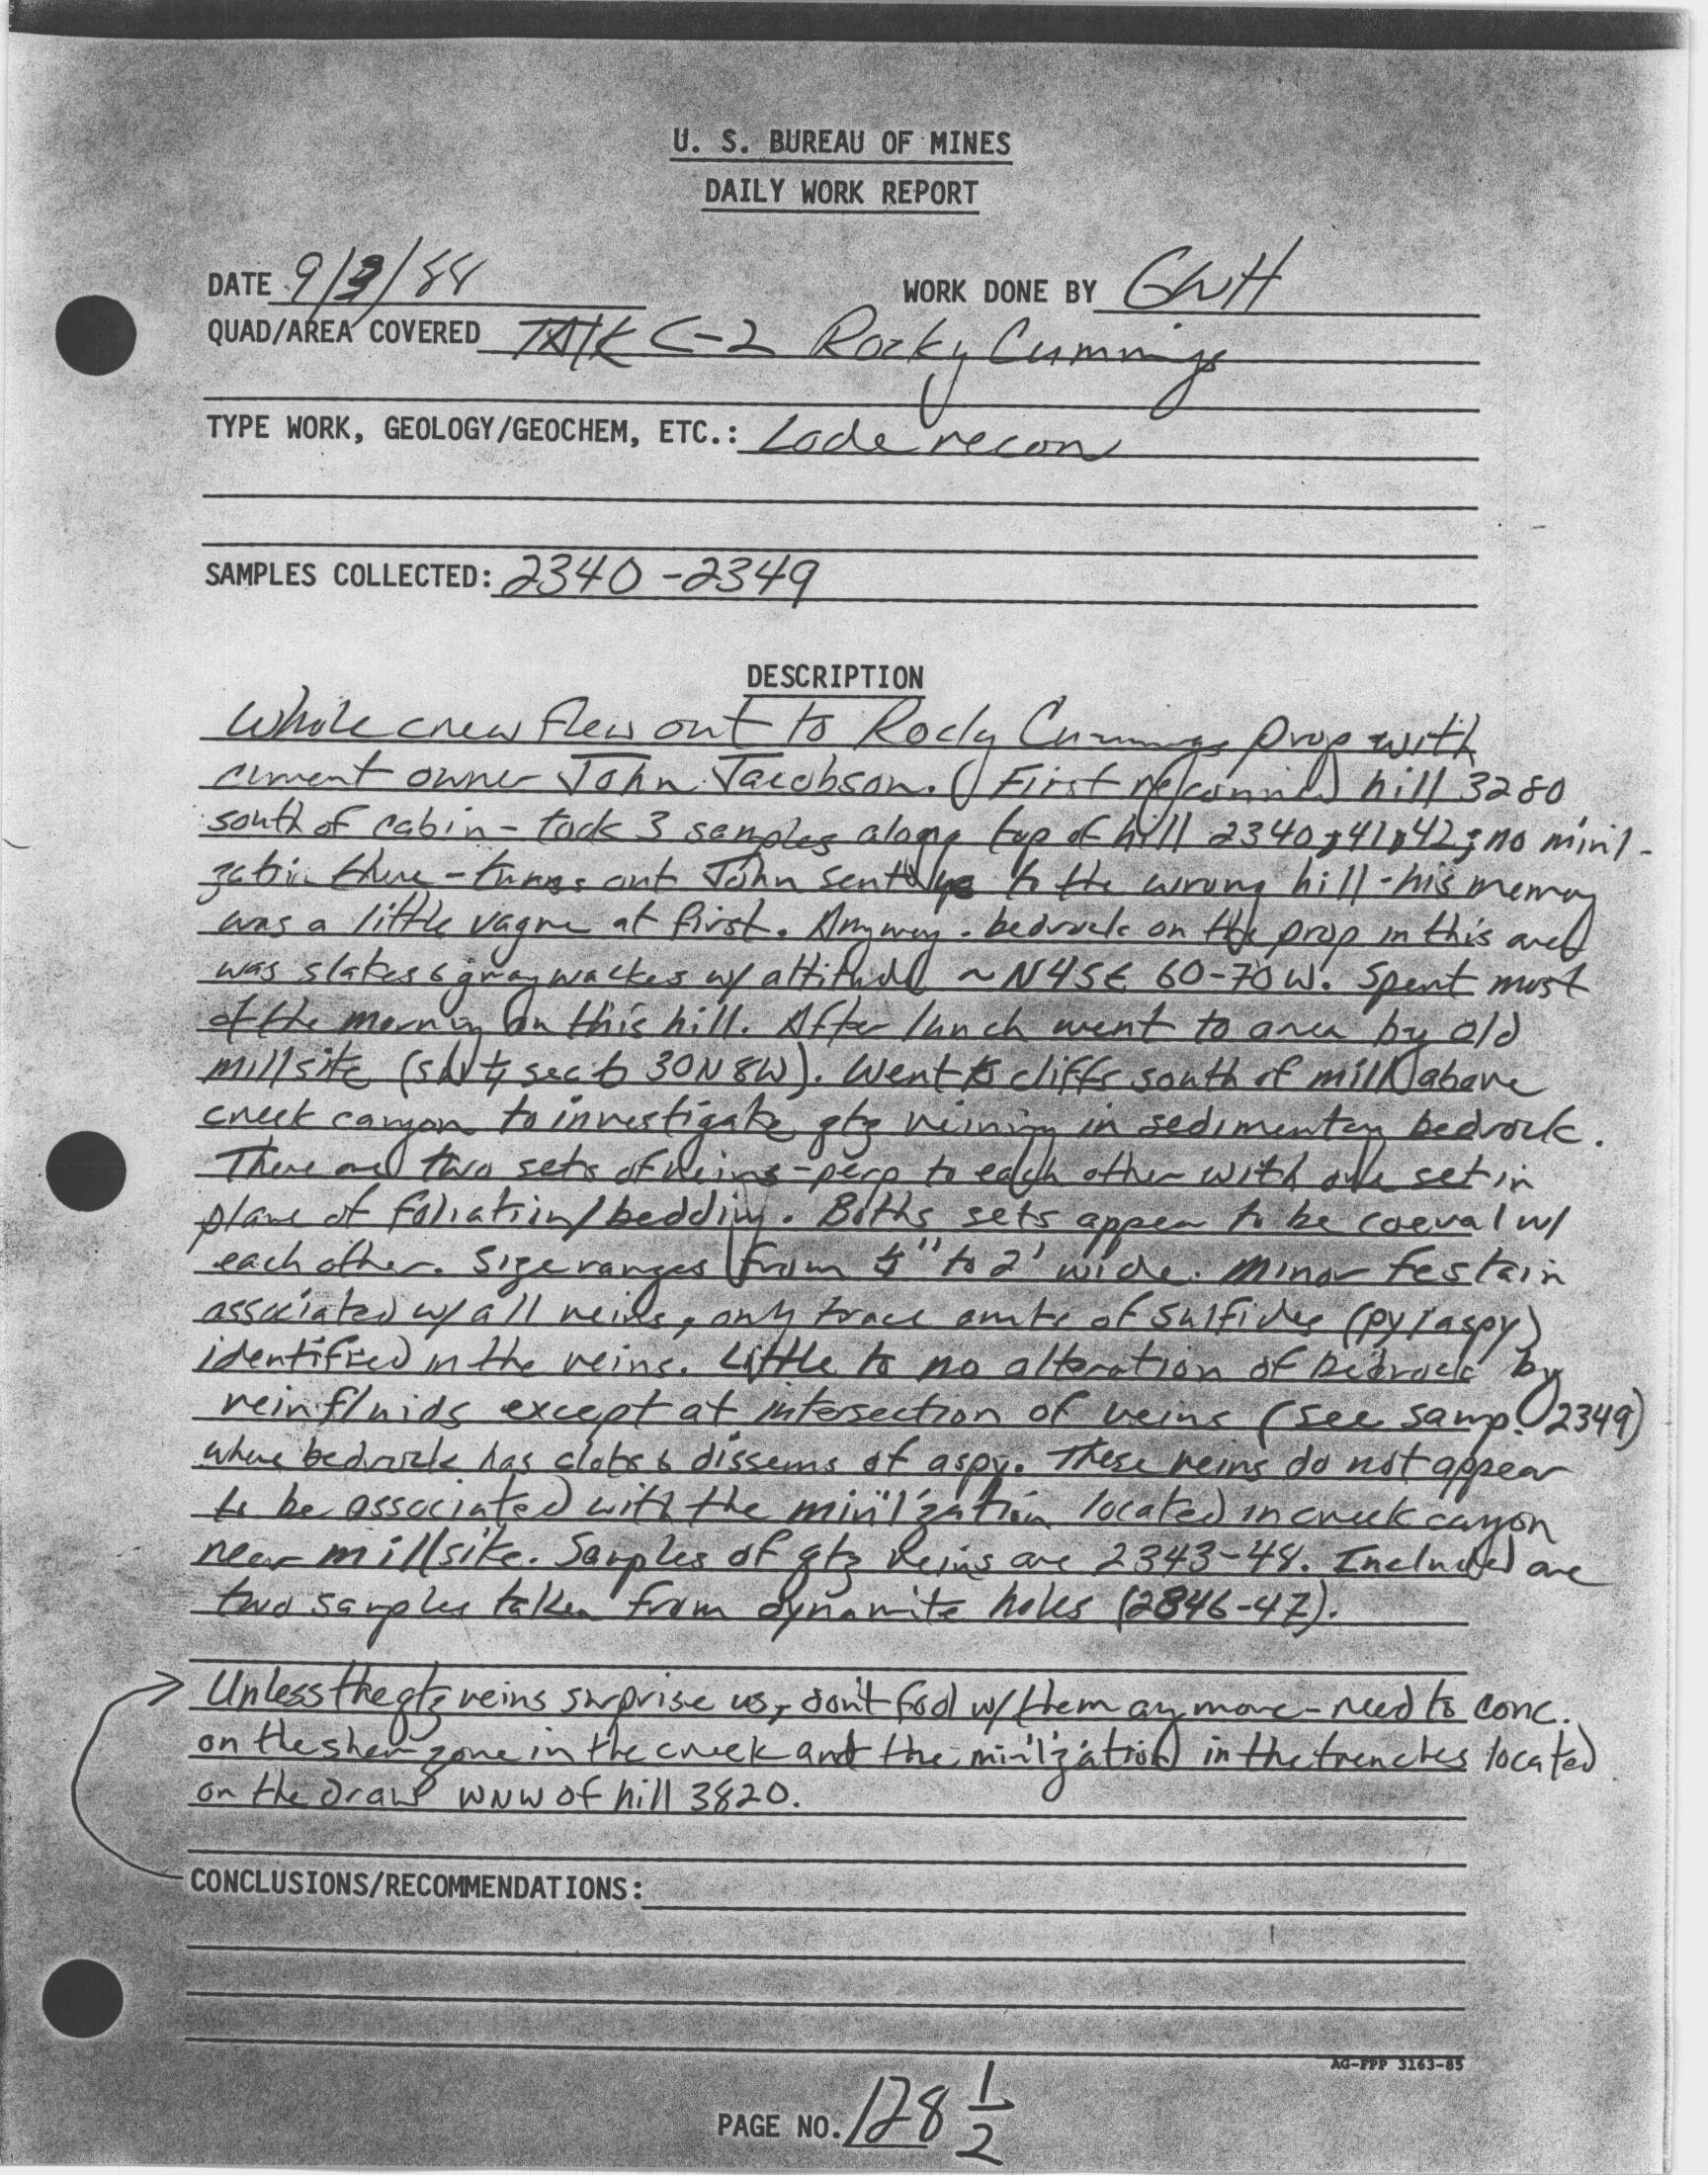 U. S. BUREAU OF MINES
DAILY WORK REPORT
DATE 9/3/88 WORK DONE BY GWH
QUAD/AREA COVERED TALK C-2 Rocky Cummings
TYPE WORK, GEOLOGY/GEOCHEM, ETC.: Lode recon
SAMPLES COLLECTED: 2340-2349
DESCRIPTION
Whole crew flew out to Rocky Cummings prop with
current owner John Jacobson. First reconned hill 3280
south of cabin - took 3 samples along top of hill 2340, 41, 42; no minl-
zation there - turns out John sent to the wrong hill - his memory
was a little vague at first. Anyway - bedrock on the prop in this area
was slates & graywackes w/ attitude ~N45E 60-70W. Spent most
of the morning on this hill. After lunch went to area by old
millsite (SW¼ sec 6 30N 8W). Went to cliffs south of mill above
creek canyon to investigate qtz veining in sedimentary bedrock.
There are two sets of veins - perp to each other with one set in
plane of foliation/bedding. Boths sets appear to be coeval w/
each other. Size ranges from ¼" to 2' wide. Minor Fe stain
associated w/ all veins, only trace amts of sulfides (py/aspy)
identified in the veins. Little to no alteration of bedrock by
vein fluids except at intersection of veins (see samp. 2349)
where bedrock has clots & dissems of aspy. These veins do not appear
to be associated with the min'lization located in creek canyon
near millsite. Samples of qtz veins are 2343-48. Included are
two samples taken from dynamite holes (2846-47).
Unless the qtz veins surprise us, don't fool w/ them any more - need to conc.
on the shear zone in the creek and the min'lzation in the trenches located
on the draw WNW of hill 3820.
CONCLUSIONS/RECOMMENDATIONS:
AG-FPP 3163-85
PAGE NO. 128 1/2